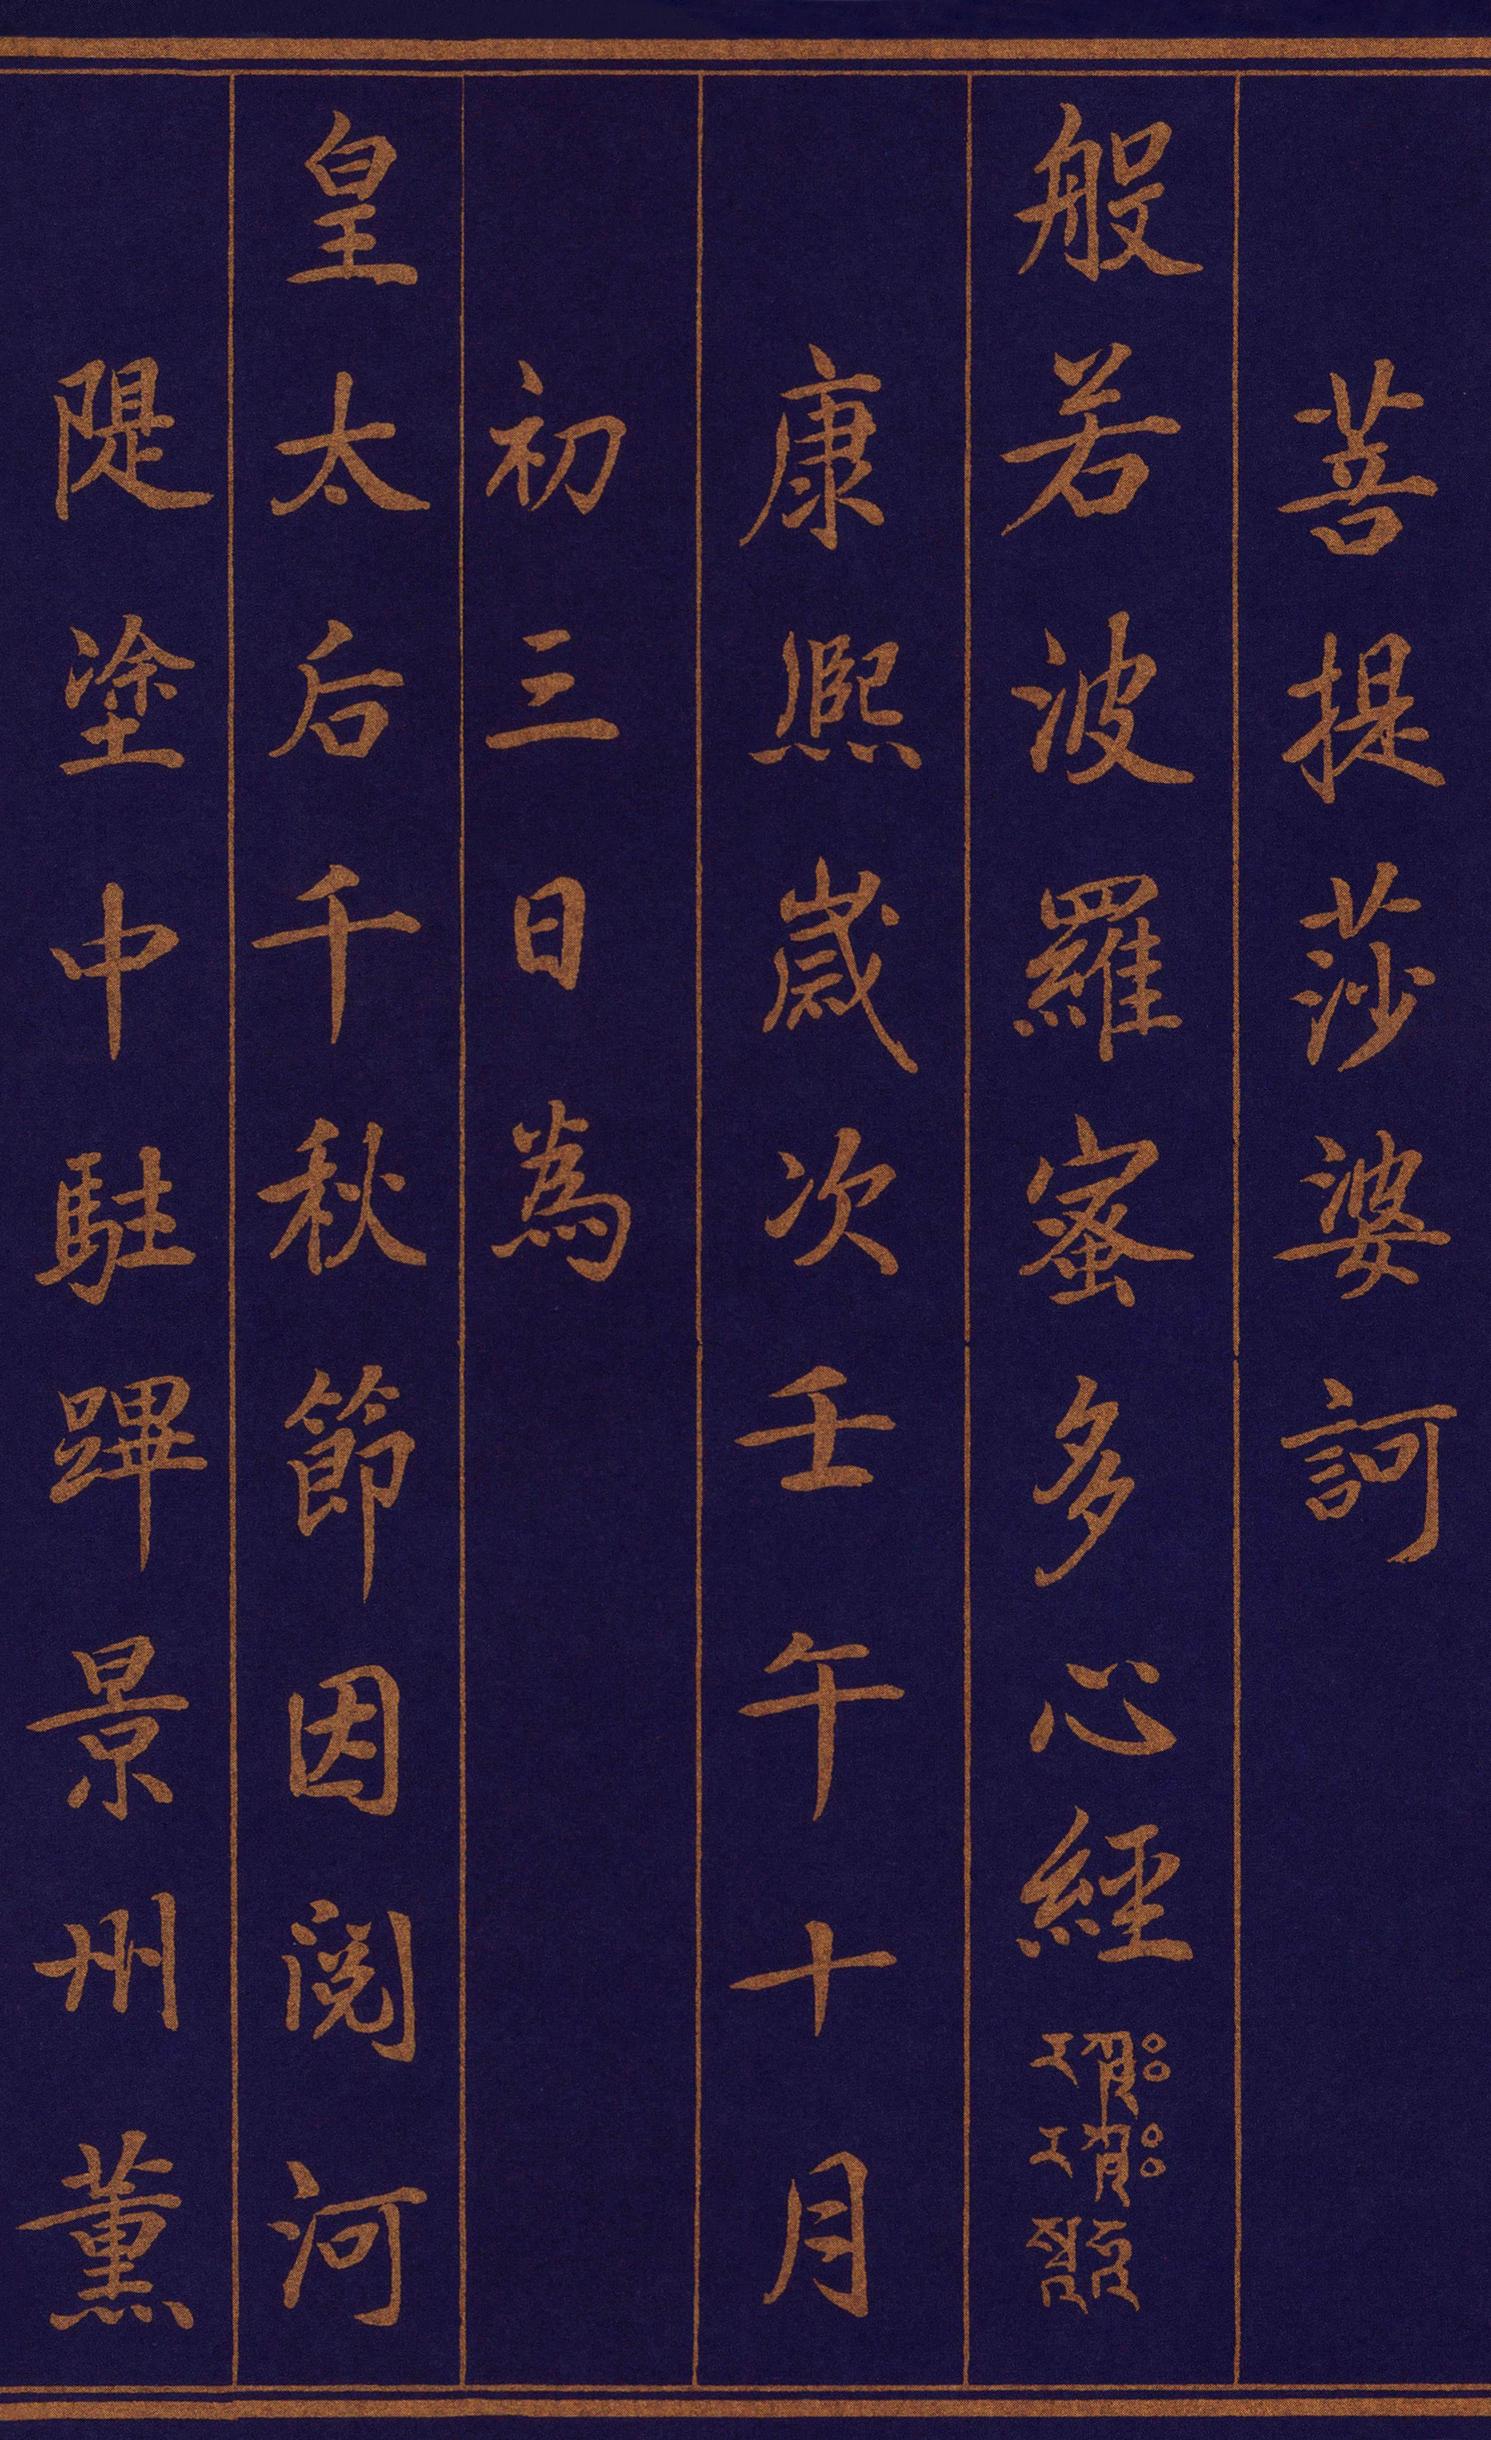 菩提莎婆訶
般若波羅蜜多心經
康熙歲次壬午十月
初三日為
皇太后千秋節因閱河
隄塗中駐蹕景州薰